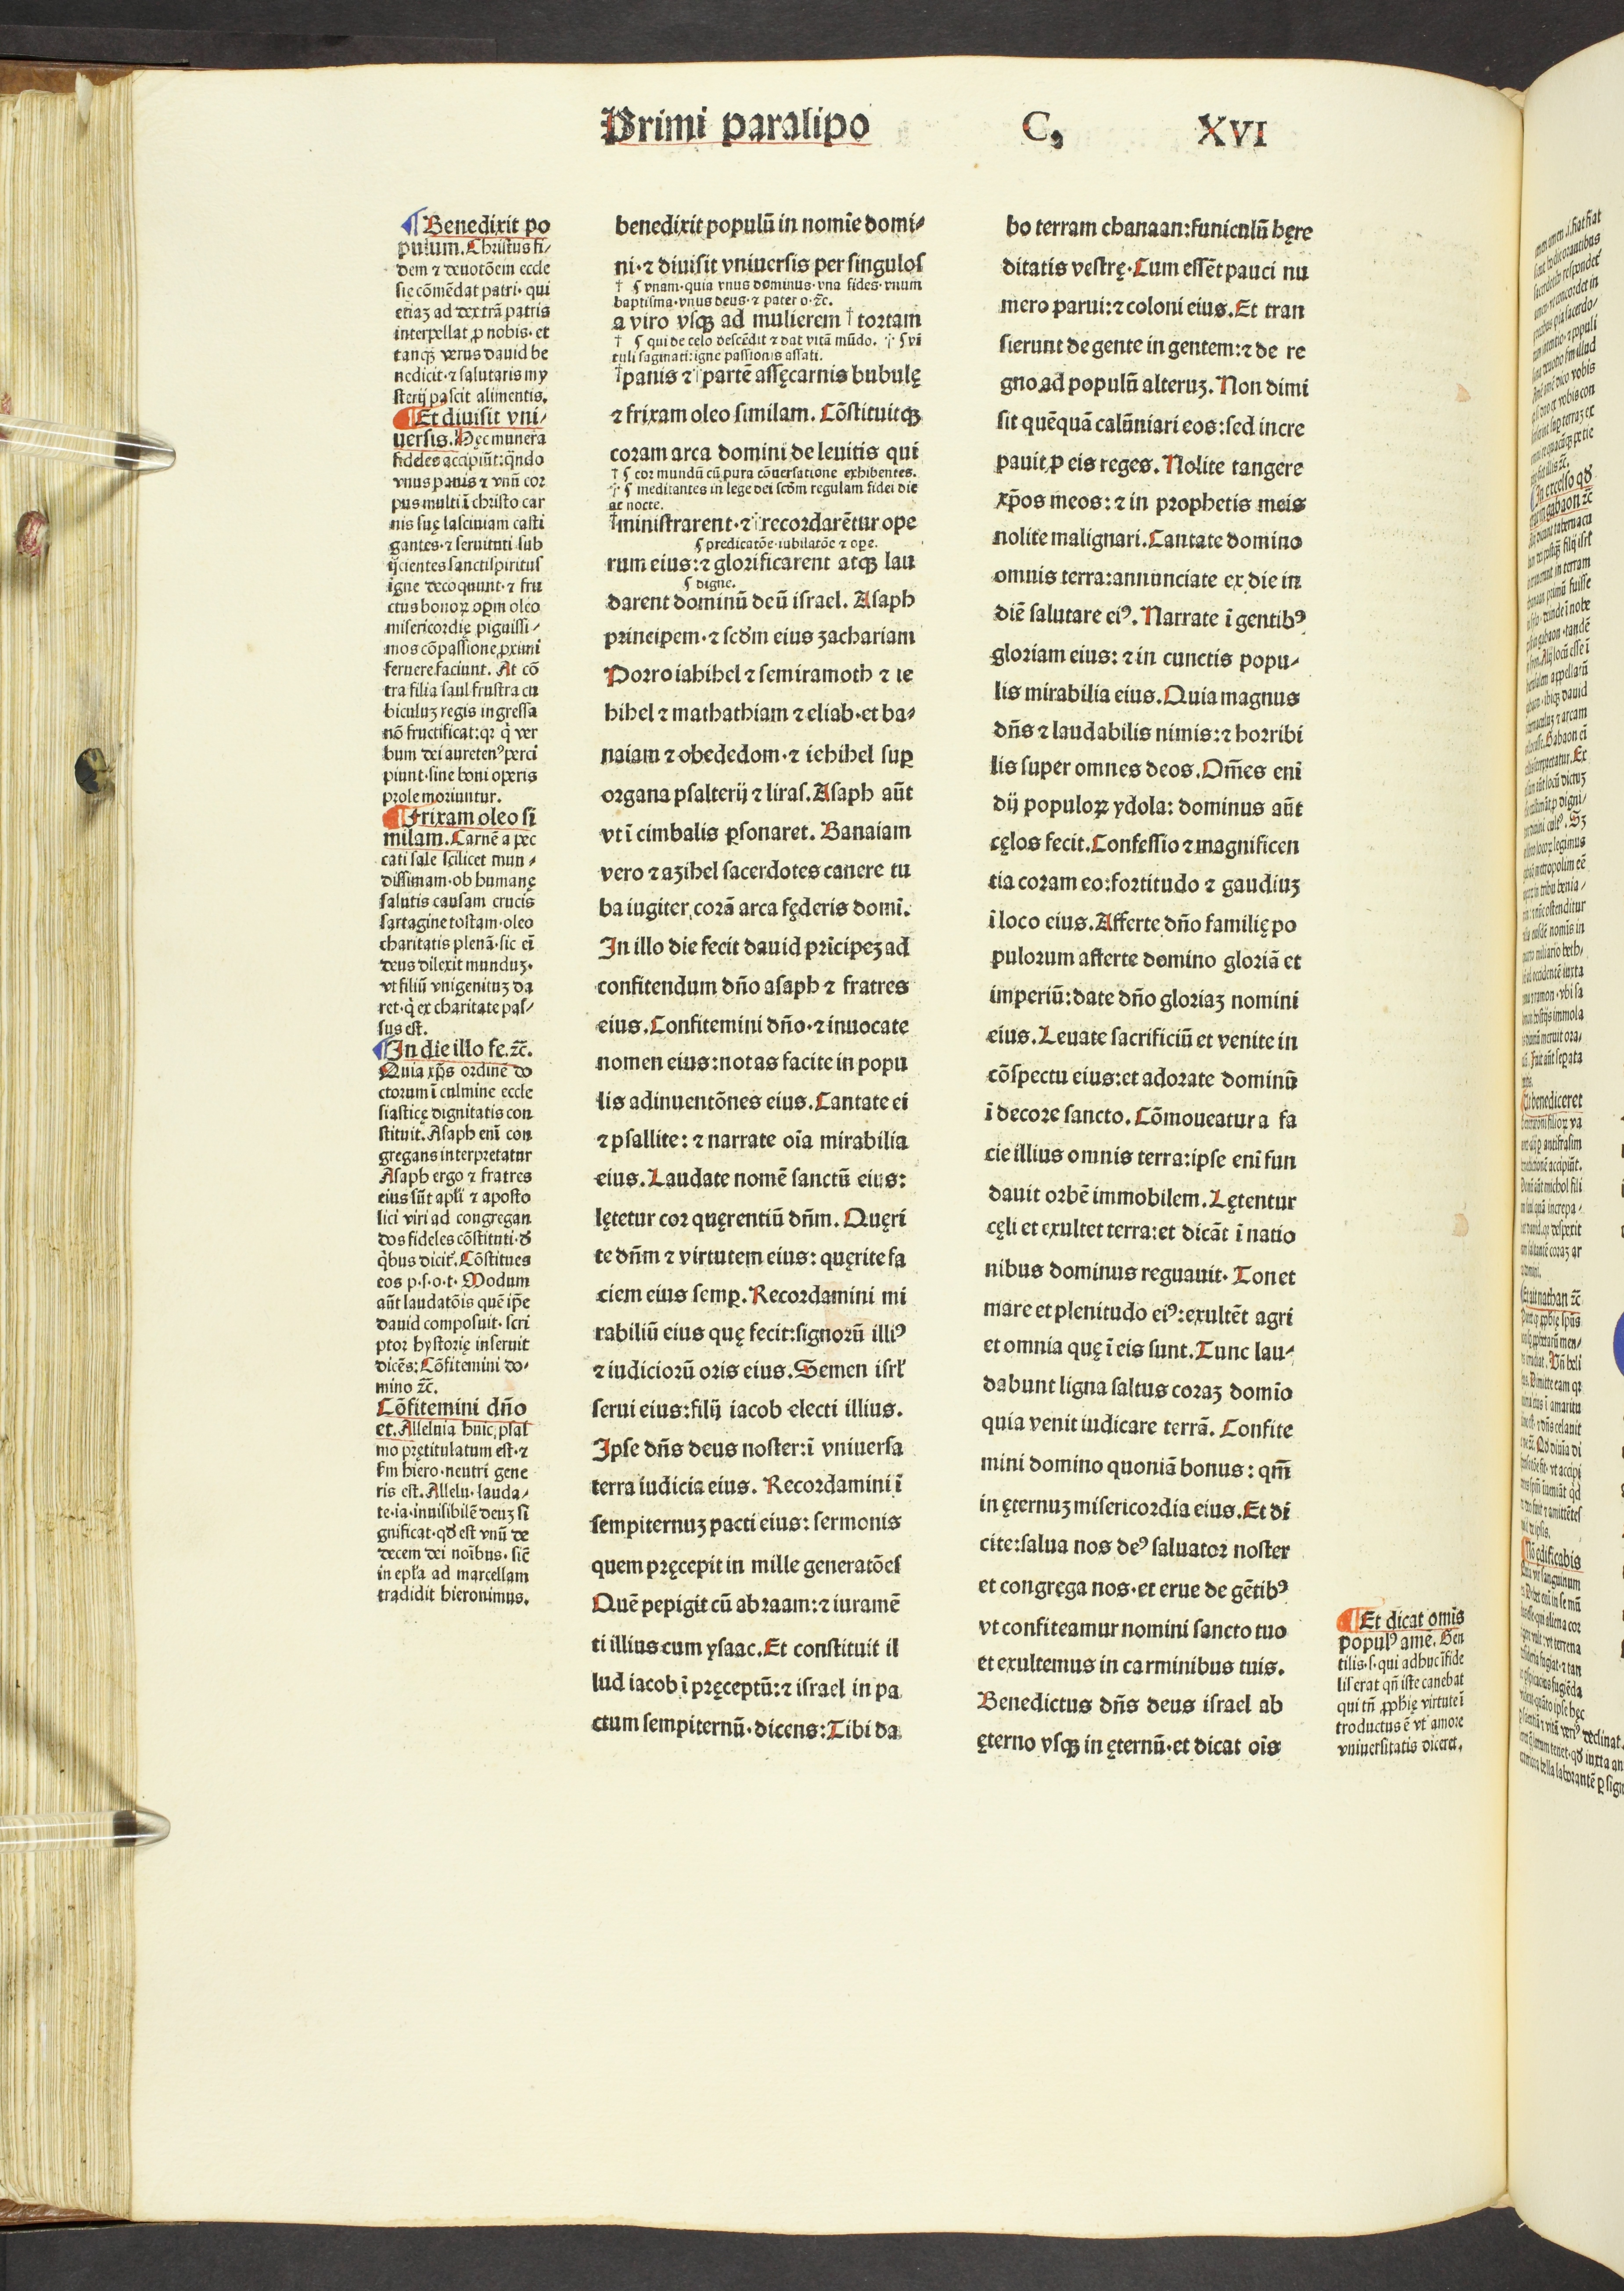 Primi paralipo
C, XVI
¶ Benedixit po
pulum. Christus fi/
dem ⁊ deuotōem eccle
sie cōmēdat patri· qui
etiaꝫ ad dextrā patris
interpellat ꝓ nobis· et
tanqꝫ verus dauid be
nedicit·⁊ salutaris my
sterij pascit alimentis.
¶ Et diuisit vni/
uersis. Hec munera
fideles accipiūt: qn̄do
vnus panis ⁊ vnū cor
pus multi ī christo car
nis suę lasciuiam casti
gantes·⁊ seruituti sub
ijcientes sanctispiritus
igne decoquunt·⁊ fru
ctus bonoꝝ opm̄ oleo
misericordię piguissi/
mos cōpassione ꝓximi
feruere faciunt. At cō
tra filia saul frustra cu
biculuꝫ regis ingressa
nō fructificat: qꝛ q̇ ver
bum dei auretenꝰ perci
piunt·sine boni operis
prole moriuntur.
¶ Frixam oleo si
milam. Carnē a pec
cati sale scilicet mun/
dissimam·ob humanę
salutis causam crucis
sartagine tostam·oleo
charitatis plenā·sic ei
deus dilexit munduꝫ·
vt filiū vnigenituꝫ da
ret·q̇ ex charitate pas/
sus est.
¶ In die illo fe. ⁊c̄.
Quia xp̄s ordinē do
ctorum ī culmine eccle
siasticę dignitatis con
stituit. Asaph enī con
gregans interpretatur
Asaph ergo ⁊ fratres
eius sūt apl'i ⁊ aposto
lici viri ad congregan
dos fideles cōstituti·ď
q̇bus dicit'. Cōstitues
eos p·s·o·t· Modum
aūt laudatōis quē ip̄e
dauid composuit·scri
ptor hystorię inseruit
dicēs: Cōfitemini do·
mino ⁊c̄.
Cōfitemini dn̄o
et. Alleluia huic psal
mo prętitulatum est·⁊
fm hiero·neutri gene
ris est. Allelu·lauda/
te·ia·inuisibilē deuꝫ si
gnificat·qď est vnū de
decem dei noībus·sic̄
in epl'a ad marcellam
tradidit hieronimus.
benedixit populū in nomīe domi/
ni·⁊ diuisit vniuersis per singulos
† ς vnam·quia vnus dominus·vna fides·vnum
baptisma·vnus deus·⁊ pater o·⁊c̄.
a viro vsqꝫ ad mulierem † tortam
† ς qui de celo descēdit ⁊ dat vitā mūdo. ⁒ ς vi
tuli saginati: igne passionis assati.
†panis ⁊ ⁒partē assęcarnis bubulę
⁊ frixam oleo similam. Cōstituitqꝫ
coram arca domini de leuitis qui
† ς cor mundū cū pura cōuersatione exhibentes.
⁒ ς meditantes in lege dei scďm regulam fidei die
ac nocte.
†ministrarent·⁊ ⁒recordarētur ope
ς predicatōe·iubilatōe ⁊ oꝑe.
rum eius: ⁊ glorificarent atqꝫ lau
ς digne.
darent dominū deū israel. Asaph
principem·⁊ scďm eius zachariam
Porro iahihel ⁊ semiramoth ⁊ ie
hihel ⁊ mathathiam ⁊ eliab·et ba/
naiam ⁊ obededom·⁊ iehihel suꝑ
organa psalterij ⁊ liras. Asaph aūt
vt ī cimbalis ꝑsonaret. Banaiam
vero ⁊ azihel sacerdotes canere tu
ba iugiter corā arca fęderis domī.
In illo die fecit dauid prīcipeꝫ ad
confitendum dn̄o asaph ⁊ fratres
eius. Confitemini dn̄o·⁊ inuocate
nomen eius: notas facite in popu
lis adinuentōnes eius. Cantate ei
⁊ psallite: ⁊ narrate oīa mirabilia
eius. Laudate nomē sanctū eius:
lętetur cor quęrentiū dn̄m. Quęri
te dn̄m ⁊ virtutem eius: quęrite fa
ciem eius semꝑ. Recordamini mi
rabiliū eius quę fecit: signorū illiꝰ
⁊ iudiciorū oris eius. Semen isrl'
serui eius: filij iacob electi illius.
Ipse dn̄s deus noster: ī vniuersa
terra iudicia eius. Recordamini ī
sempiternuꝫ pacti eius: sermonis
quem pręcepit in mille generatōes
Quē pepigit cū abraam: ⁊ iuramē
ti illius cum ysaac. Et constituit il
lud iacob ī pręceptū: ⁊ israel in pa
ctum sempiternū·dicens: Tibi da
bo terram chanaan: funiculū hęre
ditatis vestrę. Cum essēt pauci nu
mero parui: ⁊ coloni eius. Et tran
sierunt de gente in gentem: ⁊ de re
gno ad populū alteruꝫ. Non dimi
sit quēquā calūniari eos: sed incre
pauit ꝓ eis reges. Nolite tangere
xp̄os meos: ⁊ in prophetis meis
nolite malignari. Cantate domino
omnis terra: annunciate ex die in
diē salutare eiꝰ. Narrate ī gentibꝰ
gloriam eius: ⁊ in cunctis popu/
lis mirabilia eius. Quia magnus
dn̄s ⁊ laudabilis nimis: ⁊ horribi
lis super omnes deos. Om̄es enī
dij populoꝝ ydola: dominus aūt
cęlos fecit. Confessio ⁊ magnificen
tia coram eo: fortitudo ⁊ gaudiuꝫ
ī loco eius. Afferte dn̄o familię po
pulorum afferte domino gloriā et
imperiū: date dn̄o gloriaꝫ nomini
eius. Leuate sacrificiū et venite in
cōspectu eius: et adorate dominū
ī decore sancto. Cōmoueatur a fa
cie illius omnis terra: ipse enī fun
dauit orbē immobilem. Lętentur
cęli et exultet terra: et dicāt ī natio
nibus dominus regnauit. Tonet
mare et plenitudo eiꝰ: exultēt agri
et omnia quę ī eis sunt. Tunc lau/
dabunt ligna saltus coraꝫ domīo
quia venit iudicare terrā. Confite
mini domino quoniā bonus: qm̄
in ęternuꝫ misericordia eius. Et di
cite: salua nos deꝰ saluator noster
et congrega nos·et erue de gētibꝰ
vt confiteamur nomini sancto tuo
et exultemus in carminibus tuis.
Benedictus dn̄s deus israel ab
ęterno vsqꝫ in ęternū·et dicat oīs
¶ Et dicat omīs
populꝰ amē. Gen
tilis·s·qui adhuc īfide
lis erat qn̄ iste canebat
qui tn̄ ꝓphię virtute ī
troductus ē vt' amore
vniuersitatis diceret.